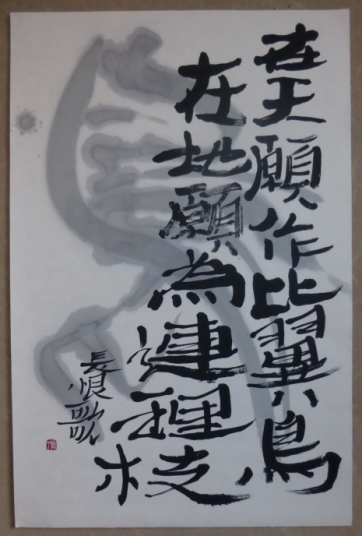 在天願作比翼鳥
在地願為連理枝
長恨歌